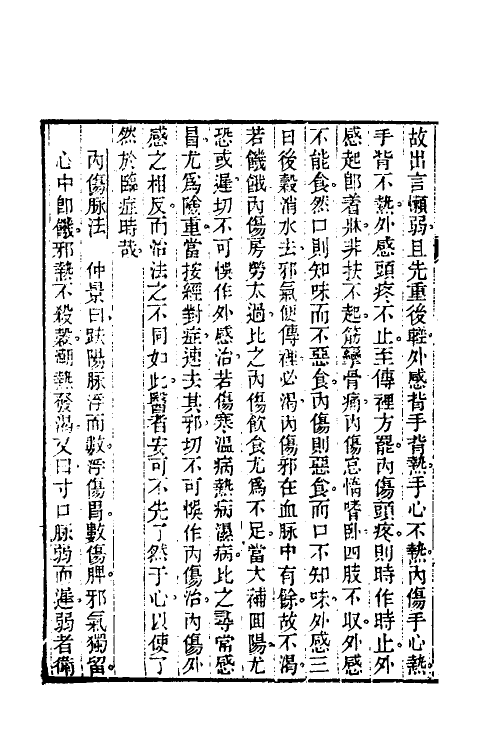 故出言懶弱且先重後輕外感背手背熱手心不熱內傷手心熱
手背不熱外感頭疼不止至傳裡方罷內傷頭疼則時作時止外
感起即着牀非扶不起筋攣骨痛內傷怠惰嗜卧四肢不收外感
不能食然口則知味而不惡食內傷則惡食而口不知味外感三
日後穀消水去邪氣便傳裡必渴內傷邪在血脉中有餘故不渴
若饑餓內傷房勞太過比之內傷飲食尤爲不足當大補回陽尤
恐或遲切不可悞作外感治若傷寒溫病熱病濕病比之尋常感
冒尤爲險重當按經對症速去其邪切不可悞作內傷治內傷外
感之相反而治法之不同如此醫者安可不先了然于心以使了
然於臨症時哉
內傷脉法 仲景曰趺陽脉浮而數浮傷胃數傷脾邪氣獨留
心中即饑邪熱不殺穀潮熱發渴又曰寸口脉弱而遲弱者衛